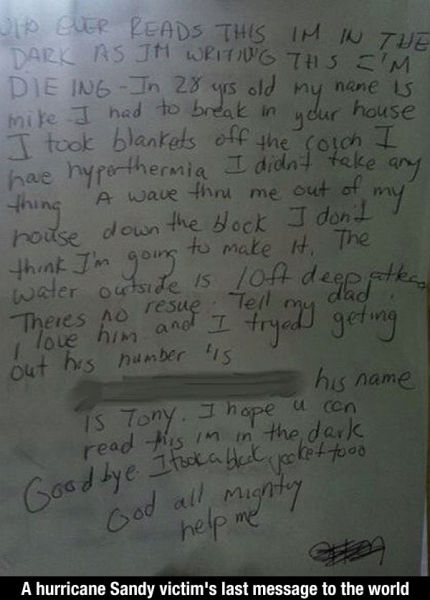 WHO EVER READS THIS IM IN THE
DARK AS IM WRITING THIS I'M
DIEING - Im 28 yrs old my name is
mike. I had to break in your house
I took blankets off the coich I
hae hypperthermia I didnt take any
thing A wave thru me out of my
house down the block I don't
think I'm going to make it. The
water outside is 10ft deep atlea
Theres no resue. Tell my dad
I love him and I tryed geting
out his number is
his name
is Tony. I hope u can
read this im in the dark
Good bye. I took a black jacket tooo
God all mighty
help me
A hurricane Sandy victim's last message to the world